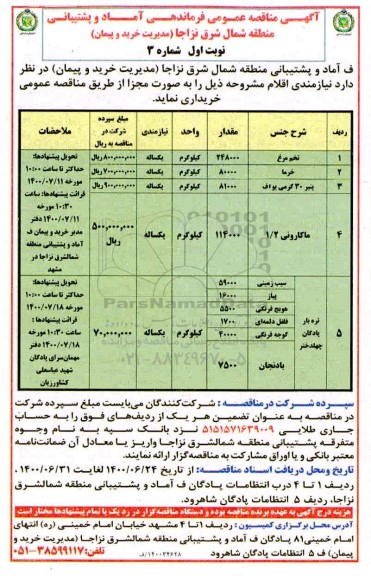 آگهی مناقصه عمومی فرماندهی آماد و پشتیبانی
منطقه شمال شرق نزاجا (مدیریت خرید و پیمان)
نوبت اول شماره ۳
ف آماد و پشتیبانی منطقه شمال شرق نزاجا (مدیریت خرید و پیمان) در نظر
دارد نیازمندی اقلام مشروحه ذیل را به صورت مجزا از طریق مناقصه عمومی
خریداری نماید.
ردیف شرح جنس مقدار واحد نیازمندی مبلغ سپرده شرکت در مناقصه به ریال ملاحضات
۱ تخم مرغ ۲۴۸۰۰۰ کیلوگرم یکساله ۸۰۰,۰۰۰,۰۰۰ ریال
۲ خرما ۸۰۰۰۰ کیلوگرم یکساله ۷۰۰,۰۰۰,۰۰۰ ریال
۳ پنیر ۳۰ گرمی یو اف ۸۱۰۰۰ کیلوگرم یکساله ۹۰۰,۰۰۰,۰۰۰ ریال
۴ ماکارونی ۱/۲ ۱۱۴۰۰۰ کیلوگرم یکساله ۵۰۰,۰۰۰,۰۰۰ ریال
تحویل پیشنهادها:
حداکثر تا ساعت ۱۰:۰۰
مورخه ۱۴۰۰/۰۷/۱۱
قرائت پیشنهادها: ساعت
۱۰:۳۰ مورخه
۱۴۰۰/۰۷/۱۱ دفتر
مدیر خرید و پیمان ف
آماد و پشتیبانی منطقه
شمالشرق نزاجا در
مشهد
۵ تره بار پادگان چهلدختر کیلوگرم یکساله ۷۰,۰۰۰,۰۰۰
سیب زمینی ۵۹۰۰۰
پیاز ۱۶۰۰۰
هویج فرنگی ۵۵۰۰
فلفل دلمه‌ای ۱۷۰۰
گوجه فرنگی ۴۰۰۰۰
بادنجان ۷۵۰۰
تحویل پیشنهادها:
حداکثر تا ساعت ۱۰:۰۰
مورخه ۱۴۰۰/۰۷/۱۸
قرائت پیشنهادها:
ساعت ۱۰:۳۰ مورخه
۱۴۰۰/۰۷/۱۸ دفتر
مهمان‌سرای پادگان
شهید عباسعلی
کشاورزیان
ParsNamadData
۰۲۱-۸۸۳۴۹۶۷۰-۵
سپرده شرکت در مناقصه: شرکت‌کنندگان می‌بایست مبلغ سپرده شرکت
در مناقصه به عنوان تضمین هر یک از ردیف‌های فوق را به حساب
جاری طلایی ۵۱۵۱۵۷۱۶۳۹۰۰۹ نزد بانک سپه به نام وجوه
متفرقه پشتیبانی منطقه شمالشرق نزاجا واریز یا معادل آن ضمانت‌نامه
معتبر بانکی و یا اوراق مشارکت به مناقصه‌گزار ارائه نمایند.
تاریخ و محل دریافت اسناد مناقصه: از تاریخ ۱۴۰۰/۰۶/۲۴ لغایت ۱۴۰۰/۰۶/۳۱.
ردیف ۱ تا ۴ درب انتظامات پادگان ف آماد و پشتیبانی منطقه شمالشرق
نزاجا، ردیف ۵ انتظامات پادگان شاهرود.
هزینه درج آگهی به عهده برنده مناقصه بوده و دستگاه مناقصه‌گزار در رد یک یا تمام پیشنهادها مختار است
آدرس محل برگزاری کمیسیون: ردیف ۱ تا ۴ مشهد خیابان امام خمینی (ره) انتهای
امام خمینی ۸۱ پادگان ف آماد و پشتیبانی منطقه شمالشرق نزاجا (مدیریت خرید و
پیمان) ف ۵ انتظامات پادگان شاهرود
تلفن: ۳۸۵۹۹۱۱۷-۰۵۱